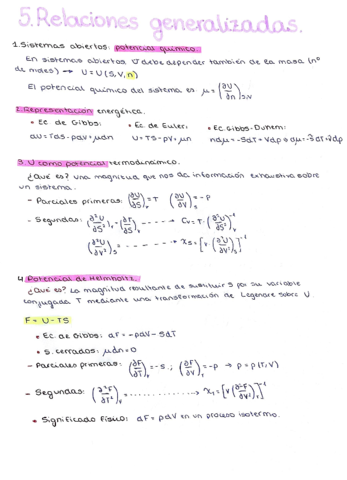 5. Relaciones generalizadas.
1. Sistemas abiertos: potencial químico.
En sistemas abiertos U debe depender también de la masa (nº
de moles) → U = U(S,V,n)
El potencial químico del sistema es μ = (∂U/∂n)S,V
2. Representación energética.
• Ec. de Gibbs: • Ec de Euler: • Ec. Gibbs-Duhem:
dU = TdS - pdV + μdn U = TS - pV + μn ndμ = -SdT + Vdp → dμ = -SdT + vdp
3. U como potencial termodinámico.
¿Qué es? una magnitud que nos da información exhaustiva sobre
un sistema.
- Parciales primeras: (∂U/∂S)V = T (∂U/∂V)S = -p
- Segundas: (∂²U/∂S²)V = (∂T/∂S)V ----→ CV = T · (∂²U/∂S²)V⁻¹
(∂²U/∂V²)S = ----→ χS = [V (∂²U/∂V²)S]⁻¹
4. Potencial de Helmholtz.
¿Qué es? La magnitud resultante de sustituir S por su variable
conjugada T mediante una transformación de Legendre sobre U.
F = U - TS
• Ec. de Gibbs: dF = -pdV - SdT
• S. cerrados: μdn = 0
- Parciales primeras: (∂F/∂T)V = -S ; (∂F/∂V)T = -p → p = p(T,V)
- Segundas: (∂²F/∂T²)V = ------→ χT = [V (∂²F/∂V²)T]⁻¹
• Significado físico: dF = pdV en un proceso isotermo.